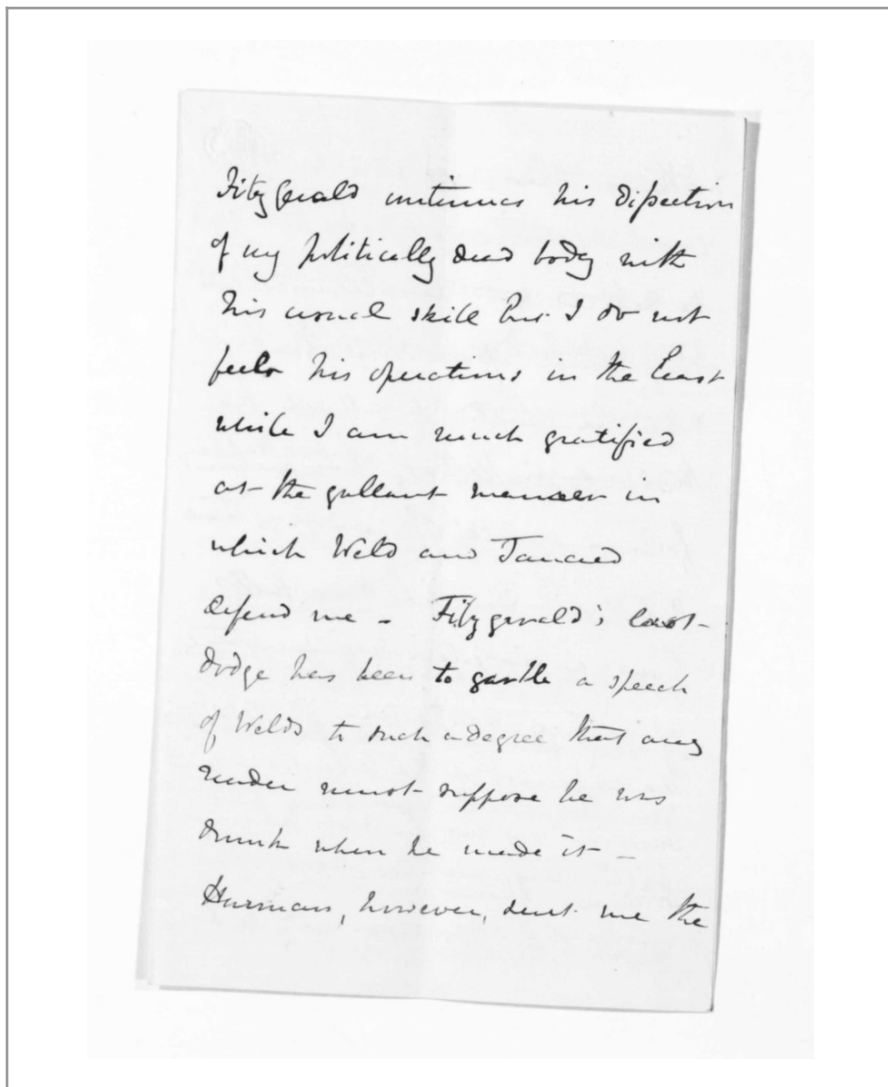 Fitzgerald continues his dissection
of my politically dead body with
his usual skill but I do not
feel his operations in the least
while I am much gratified
at the gallant manner in
which Weld and Tancred
defend me - Fitzgerald's last
dodge has been to garble a speech
of Welds to such a degree that any
reader must suppose he was
drunk when he made it -
however, sent me the